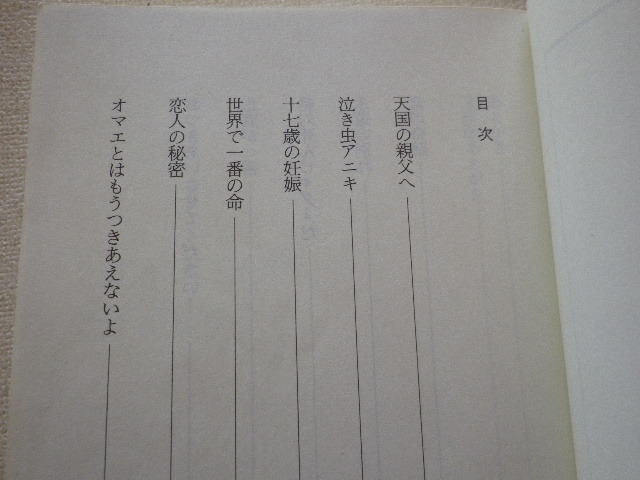 目次
天国の親父へ
泣き虫アニキ
十七歳の妊娠
世界で一番の命
恋人の秘密
オマエとはもうつきあえないよ